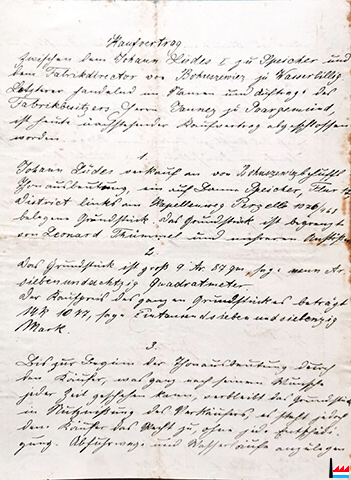 Kaufvertrag
Zwischen dem Johann Lüdes I zu Speicher und
dem Fabrikdirector von Bohuszewicz zu Wasserbillig
Letzterer handelnd im Namen und Auftrage des
Fabrikbesitzers Herrn Jaunez zu Saargemünd,
ist heute nachstehender Kaufvertrag abgeschlossen
worden
1.
Johann Lüdes verkauft an von Bohuszewicz behufs
Thonausbeutung, ein auf Banne Speicher, Flur 12
District links am Kapellenweg Parzelle
belegene Grundstück. Das Grundstück ist begrenzt
von Leonard Thümmel und mehreren Anstößern
2.
Das Grundstück ist groß 9 Ar. 87 qm, sage neun Ar
siebenundachtzig Quadratmeter.
Der Kaufpreis des ganzen Grundstückes beträgt
1077, sage Eintausendsiebenundsiebenzig
Mark.
3.
Bis zur Beginn der Thonausbeutung durch
den Käufer, was ganz nach seinem Wunsche
jeder Zeit geschehen kann, verbleibt das Grundstück
in Nutznießung des Verkäufers, es steht jedoch
dem Käufer das Recht zu, ohne jede Entschädi-
gung, Abfuhrwege und Wasserläufe anzulegen